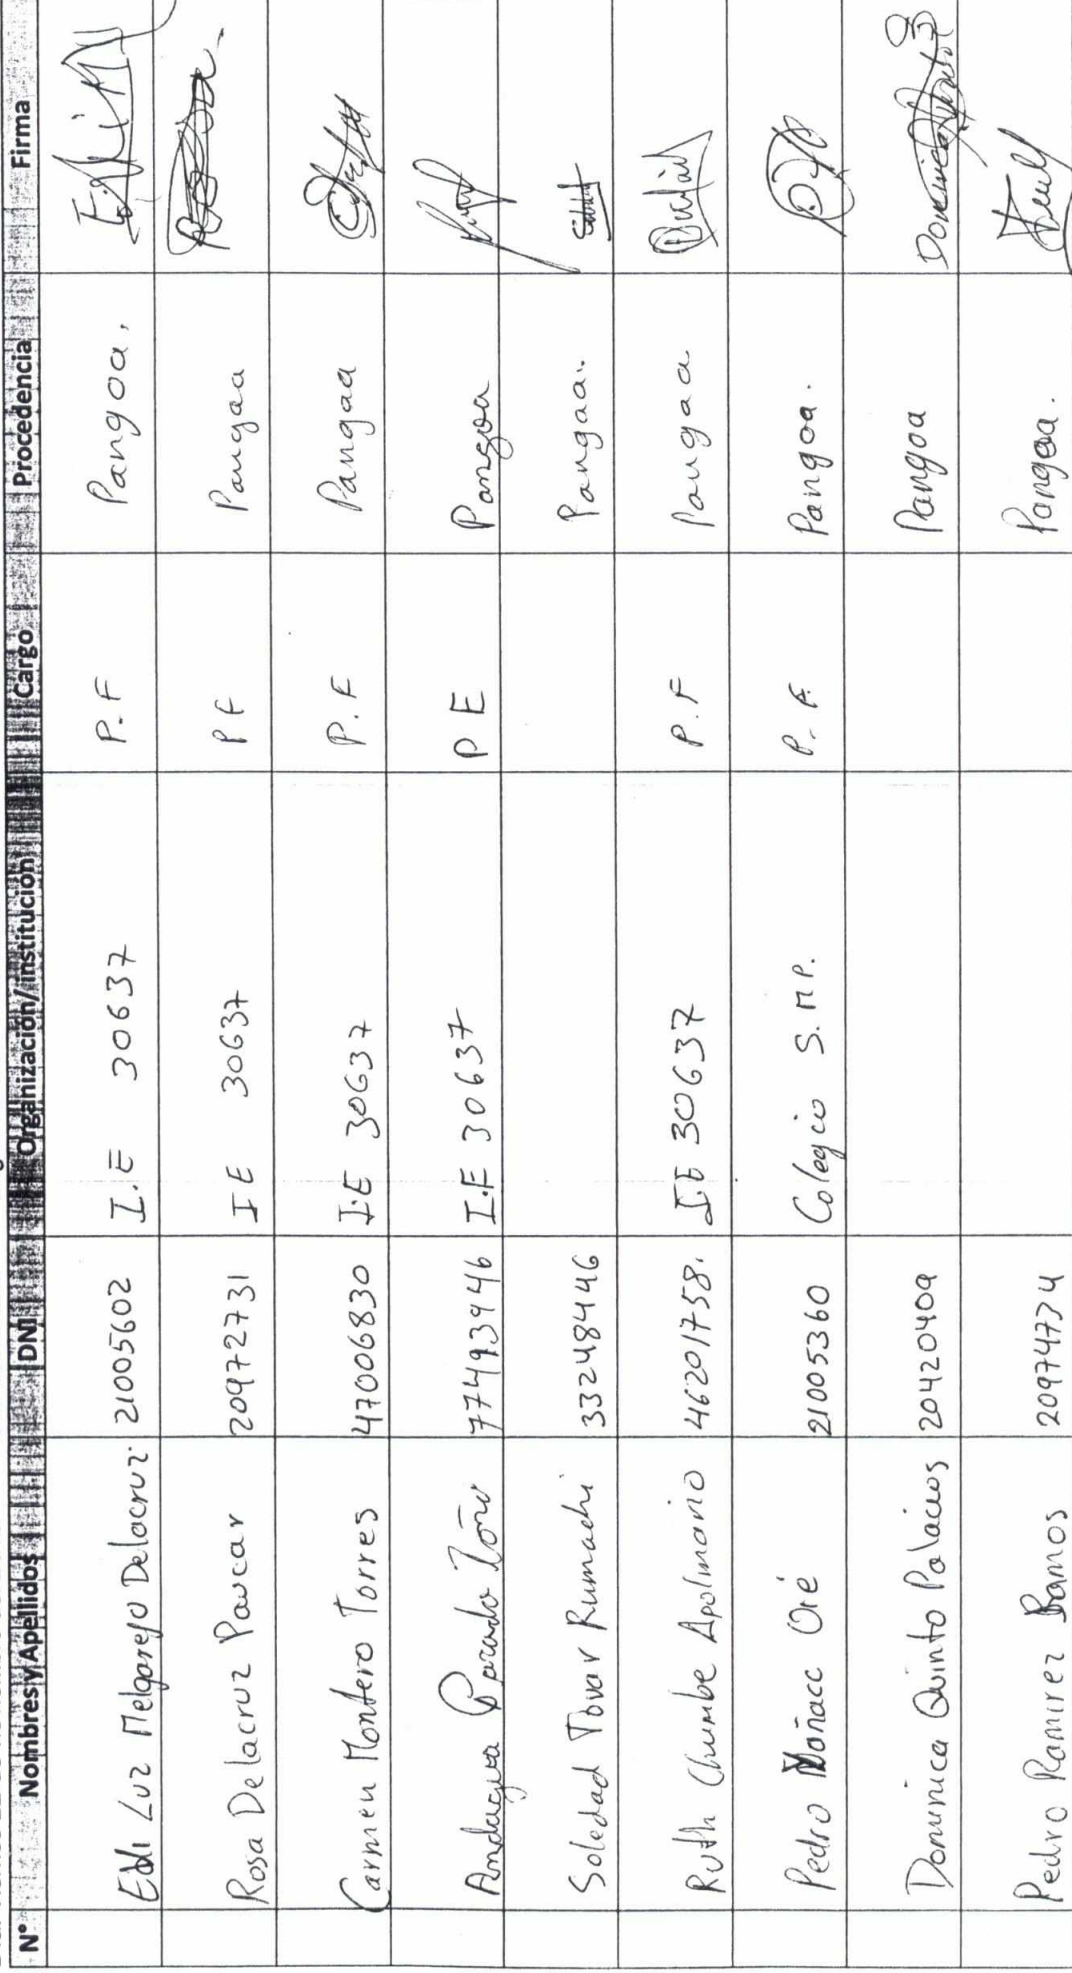 N° Nombres y Apellidos DNI Organización/institución Cargo Procedencia Firma
Edli Luz Melgarejo Delacruz 21005602 I.E 30637 P.F Pangoa.
Rosa Delacruz Paucar 20972731 IE 30637 PF Pangoa
Carmen Montero Torres 47006830 I.E 30637 P.F Pangoa
77493946 I.E 30637 P E Pangoa
Soledad Tovar Rumachi 33248446 Pangoa.
Ruth Chumbe Apolinario 46201758. IE 30637 P.F Pangoa
Pedro Ñañacc Oré 21005360 Colegio S.M.P. P.F Pangoa.
Dominica Quinto Palacios 20420409 Pangoa
Pedro Ramirez Ramos 20974774 Pangoa.